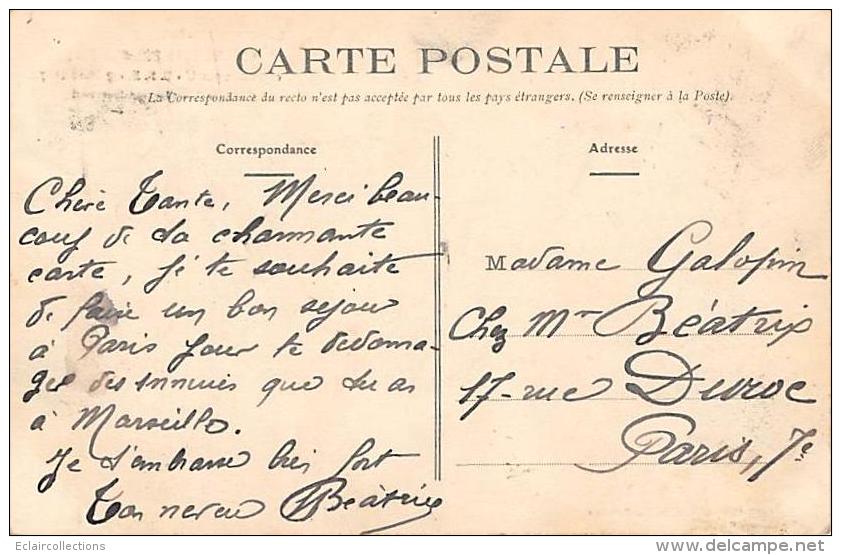 CARTE POSTALE
La Correspondance du recto n'est pas acceptée par tous les pays étrangers. (Se renseigner à la Poste).
Correspondance
Chère Tante, Merci beau-
coup de ta charmante
carte, je te souhaite
de faire un bon sejour
à Paris pour te dedoma-
ger des ennuies que tu as
à Marseille.
Je t'embrasse bien fort
Ton neveu Béatrix
Adresse
Madame Galopin
Chez Mr Béatrix
17-rue Duroc
Paris, 7e
Eclaircollections
delcampe.net